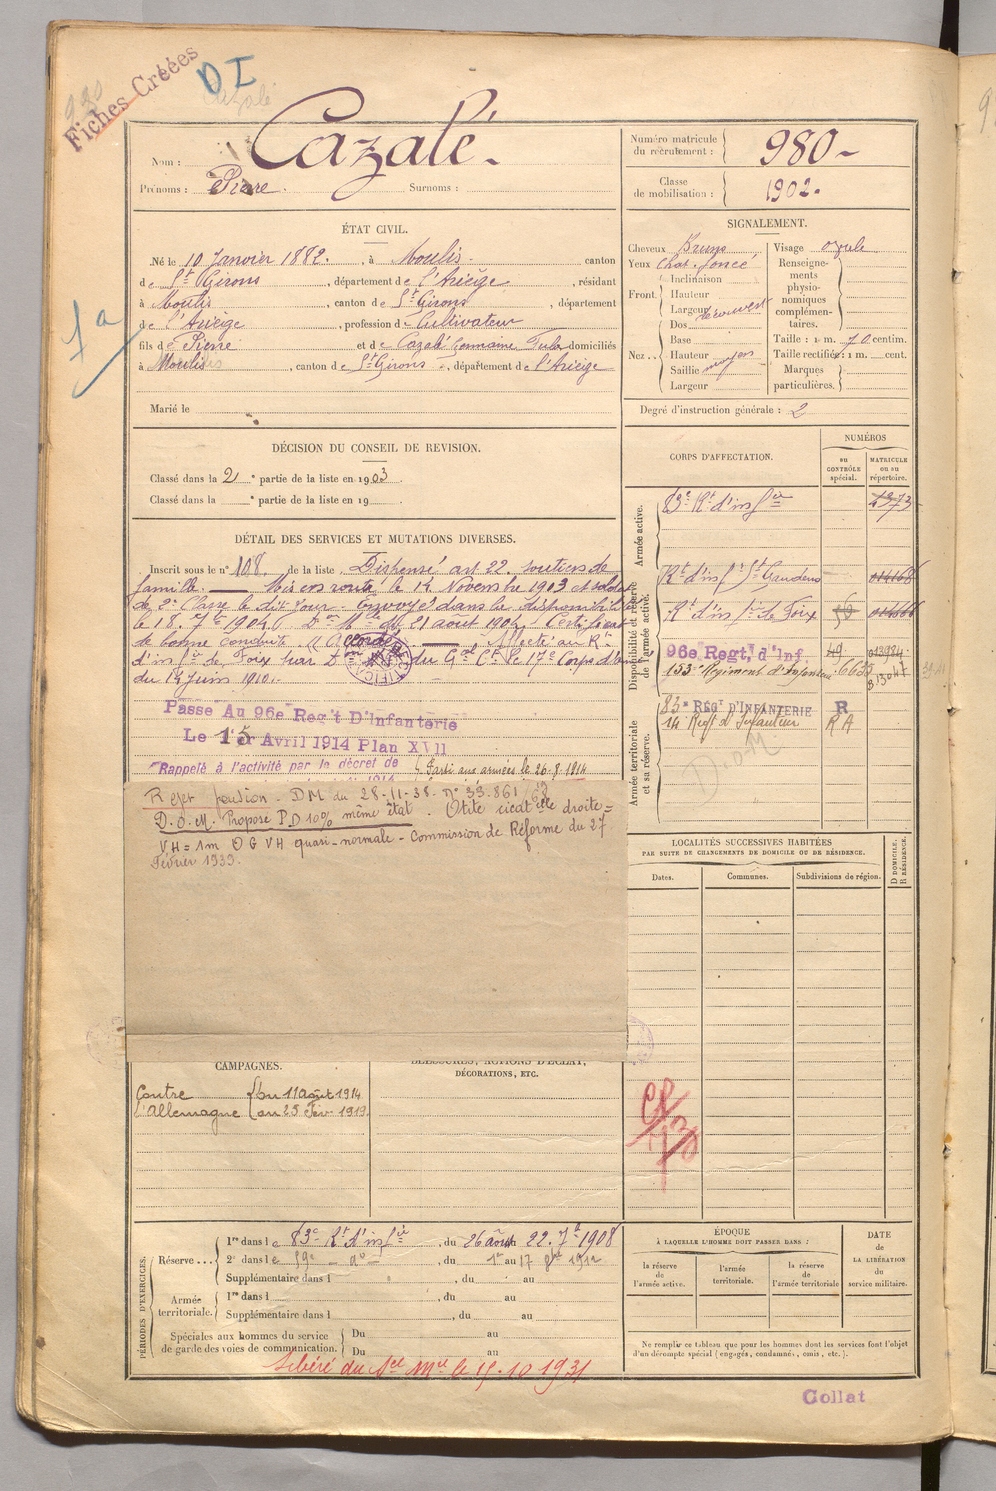 Fiches Créées
D I
Cazalé
Nom : Cazalé
Prénoms : Pierre. Surnoms :
Numéro matricule du recrutement : 980
Classe de mobilisation : 1902.
ÉTAT CIVIL.
Né le 10 Janvier 1882. , à Moulis canton
de St Girons , département de l'Ariège , résidant
à Moulis , canton de St Girons , département
de l'Ariège , profession de Cultivateur
fils de Pierre et de Cazalé Germaine domiciliés
à Moulis , canton de St Girons , département de l'Ariège
Marié le
SIGNALEMENT.
Cheveux Bruns
Yeux Chat. foncé
Front. Inclinaison
Hauteur
Largeur
Dos
Nez .. Base
Hauteur
Saillie moyen
Largeur
Visage ovale
Renseigne-
ments
physio-
nomiques
complémen-
taires.
Taille : 1 m. 70 centim.
Taille rectifiée : 1 m. cent.
Marques
particulières.
Degré d'instruction générale : 2
DÉCISION DU CONSEIL DE REVISION.
Classé dans la 2e partie de la liste en 1903
Classé dans la e partie de la liste en 19
CORPS D'AFFECTATION.
NUMÉROS
au CONTRÔLE spécial.
MATRICULE ou au répertoire.
Armée active.
83e Rt d'infie 4373
Disponibilité et réserve de l'armée active.
Rt d'inf St Gaudens
Rt d'inf ie de Foix
96e Regt, d'Inf. 49
153e Régiment d'Infanterie
Armée territoriale et sa réserve.
83e REGt D'INFANTERIE R
14 Regt d'Infanterie R A
D.O.M
DÉTAIL DES SERVICES ET MUTATIONS DIVERSES.
Inscrit sous le n° 108 de la liste Dispensé art 22. soutiens de
famille. Mis en route le 14 Novembre 1903 et soldat
de 2e Classe le dit jour. Envoyé dans la disponibilité
le 18 7bre 1904. Don Mlle du 21 août 1904 Certificat
de bonne conduite "Accordé" Affecté au Rt
d'infie de Foix par Don du Gal Ct le 17e Corps d'armée
du 14 Juin 1910.
Passe Au 96e Reg't D'Infanterie
Le 1er Avril 1914 Plan XVII
Rappelé à l'activité par le décret de
Parti aux armées le 26-8-1914
Rejet pension - DM du 28-11-38. N° 33.861/
D.O.M. Proposé P.D 10% même état. Otite cicatlle droite =
VH = 1m O G VH quasi-normale - Commission de Réforme du 27
Février 1939.
LOCALITÉS SUCCESSIVES HABITÉES
PAR SUITE DE CHANGEMENTS DE DOMICILE OU DE RÉSIDENCE.
D DOMICILE. R RÉSIDENCE.
Dates. Communes. Subdivisions de région.
CAMPAGNES.
Contre l'Allemagne
du 11 août 1914
au 25 Fev. 1919.
BLESSURES, ACTIONS D'ÉCLAT,
DÉCORATIONS, ETC.
PÉRIODES D'EXERCICES.
Réserve ...
1re dans le 83e Rt d'infie , du 26 août au 22. 7bre 1908
2e dans le 59e - do - , du 1er au 17 8bre 1912
Supplémentaire dans l , du au
Armée territoriale.
1re dans l , du au
Supplémentaire dans l , du au
Spéciales aux hommes du service
de garde des voies de communication.
Du au
Du au
Libéré du Sce Mre le 15-10 1931
ÉPOQUE
À LAQUELLE L'HOMME DOIT PASSER DANS :
la réserve de l'armée active.
l'armée territoriale.
la réserve de l'armée territoriale
DATE
de
LA LIBÉRATION
du
service militaire.
Ne remplir ce tableau que pour les hommes dont les services font l'objet
d'un décompte spécial (engagés, condamnés, omis, etc.).
Collat